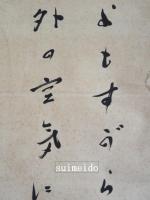 よもすがら
外の空気に
suimeido